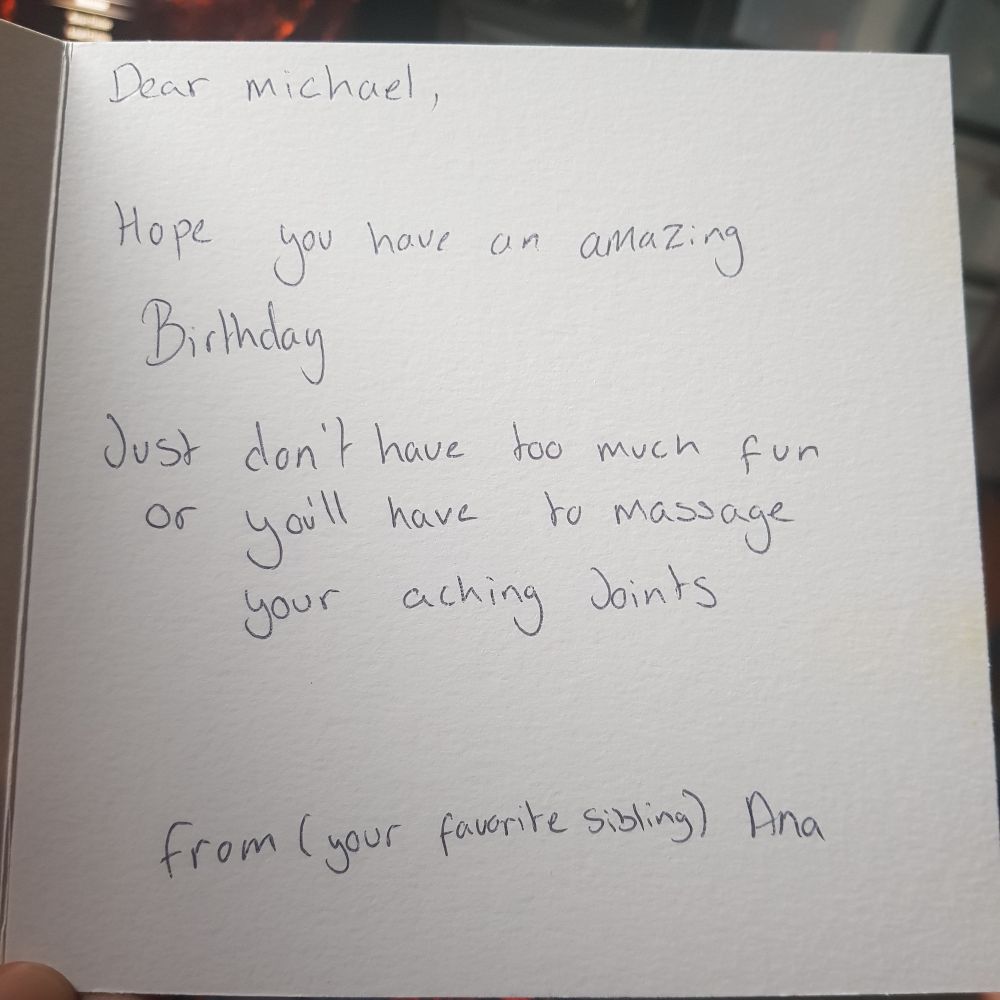 Dear michael,
Hope you have an amazing
Birthday
Just don't have too much fun
or you'll have to massage
your aching Joints
from (your favorite sibling) Ana